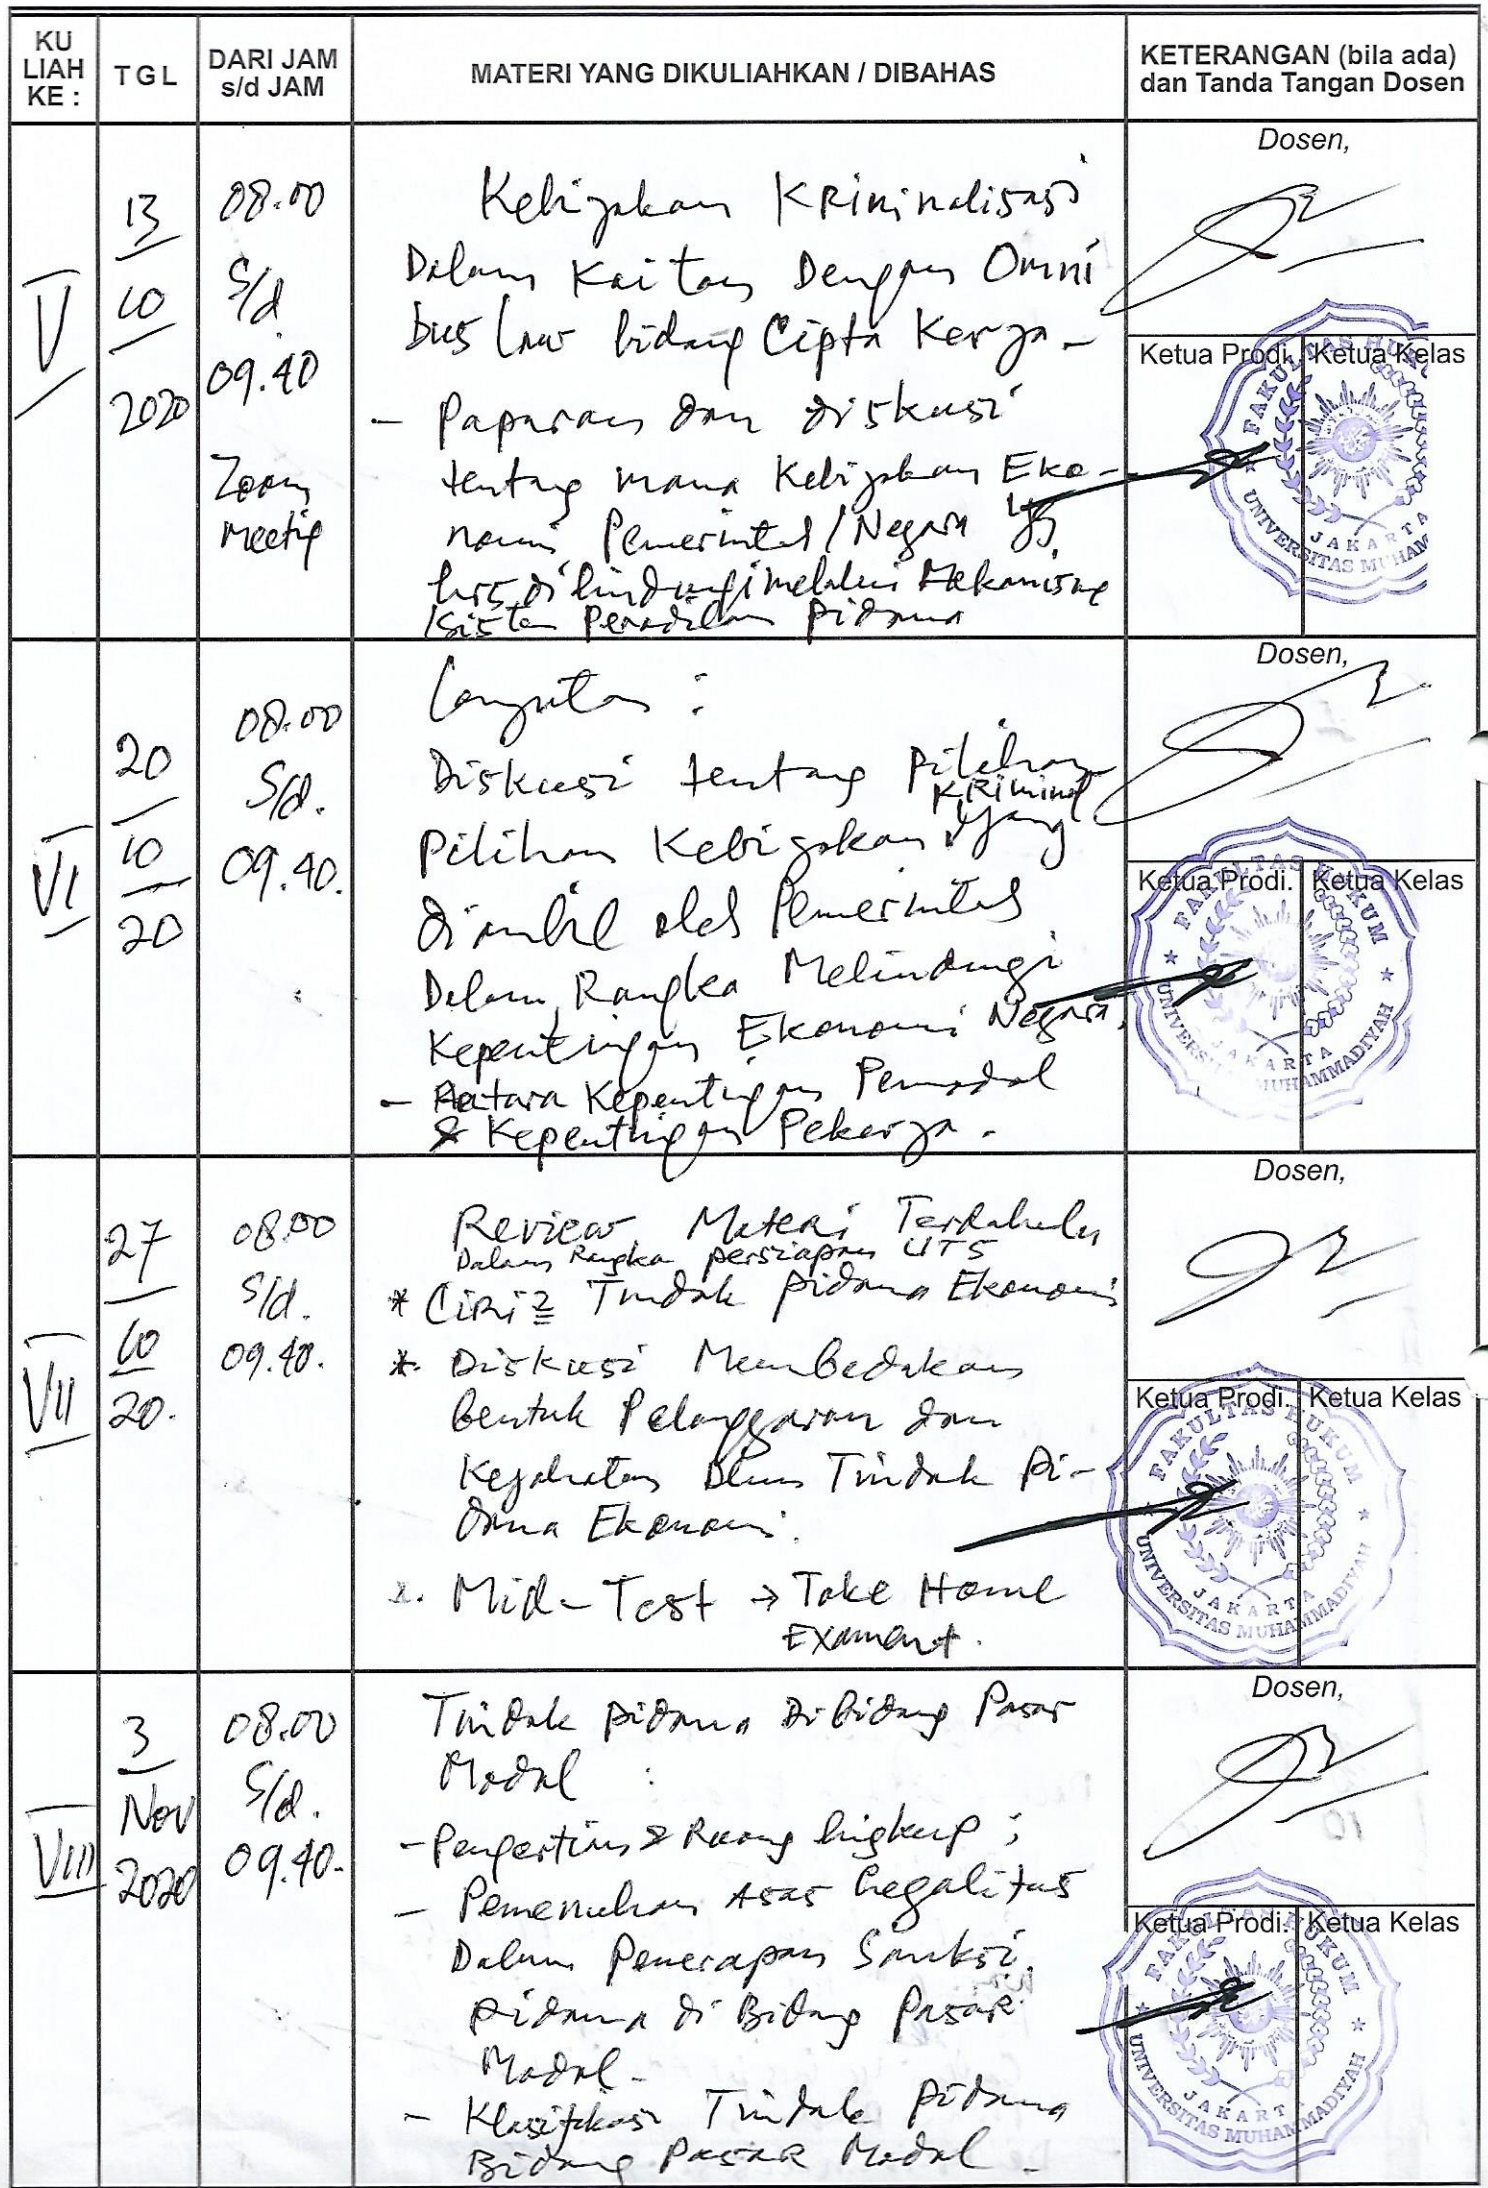 KU LIAH KE :
TGL
DARI JAM s/d JAM
MATERI YANG DIKULIAHKAN / DIBAHAS
KETERANGAN (bila ada) dan Tanda Tangan Dosen
V
13
10
2020
08.00
s/d
09.40
Zoom
Meetig
Kebijakan Kriminalisasi
Dalam Kaitan Dengan Omni
bus Law bidang Cipta Kerja -
- Paparan dan diskusi
tentang mana Kebijakan Eko-
nomi Pemerintah / Negara yg
hrs dilindungi melalui Mekanisme
Sistem Peradilan pidana
Dosen,
Ketua Prodi.
Ketua Kelas
FAKULTAS HUKU
UNIVERSITAS MUHAM
JAKARTA
VI
20
10
20
08.00
S/d.
09.40.
Lanjutan :
Diskusi tentang pilihan
Kriminal
pilihan Kebijakan yang
diambil oleh Pemerintah
Dalam Rangka Melindungi
Kepentingan Ekonomi Negara.
- Antara Kepentingan Pemodal
& Kepentingan Pekerja.
Dosen,
Ketua Prodi.
Ketua Kelas
FAKULTAS HUKUM
UNIVERSI MUHAMMADIYAH
JAKARTA
VII
27
10
20.
08.00
S/d.
09.40.
Review Materi Terdahulu
Dalam Rangka persiapan UTS
* Ciri2 Tindak pidana Ekonomi
* Diskusi Membedakan
bentuk Pelanggaran dan
Kejahatan Dlm Tindak Pi-
dana Ekonomi.
Mid - Test → Take Home
Exament.
Dosen,
Ketua Prodi.
Ketua Kelas
FAKULTAS HUKUM
UNIVERSITAS MUHAMMADIYAH
JAKARTA
VIII
3
Nov
2020
08.00
S/d.
09.40-
Tindak pidana Di Bidang Pasar
Modal :
- Pengertian & Ruang lingkup ;
- Pemenuhan Asas Legalitas
Dalam Penerapan Sanksi
pidana di Bidang Pasar
Modal -
- Klasifikasi Tindak pidana
Bidang Pasar Modal -
Dosen,
Ketua Prodi.
Ketua Kelas
FAKULTAS HUKUM
UNIVERSITAS MUHAMMADIYAH
JAKART